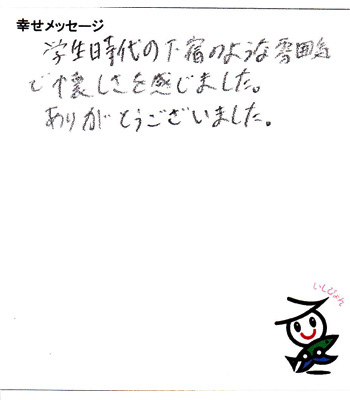 幸せメッセージ
学生時代の下宿のような雰囲気
で懐しさを感じました。
ありがとうございました。